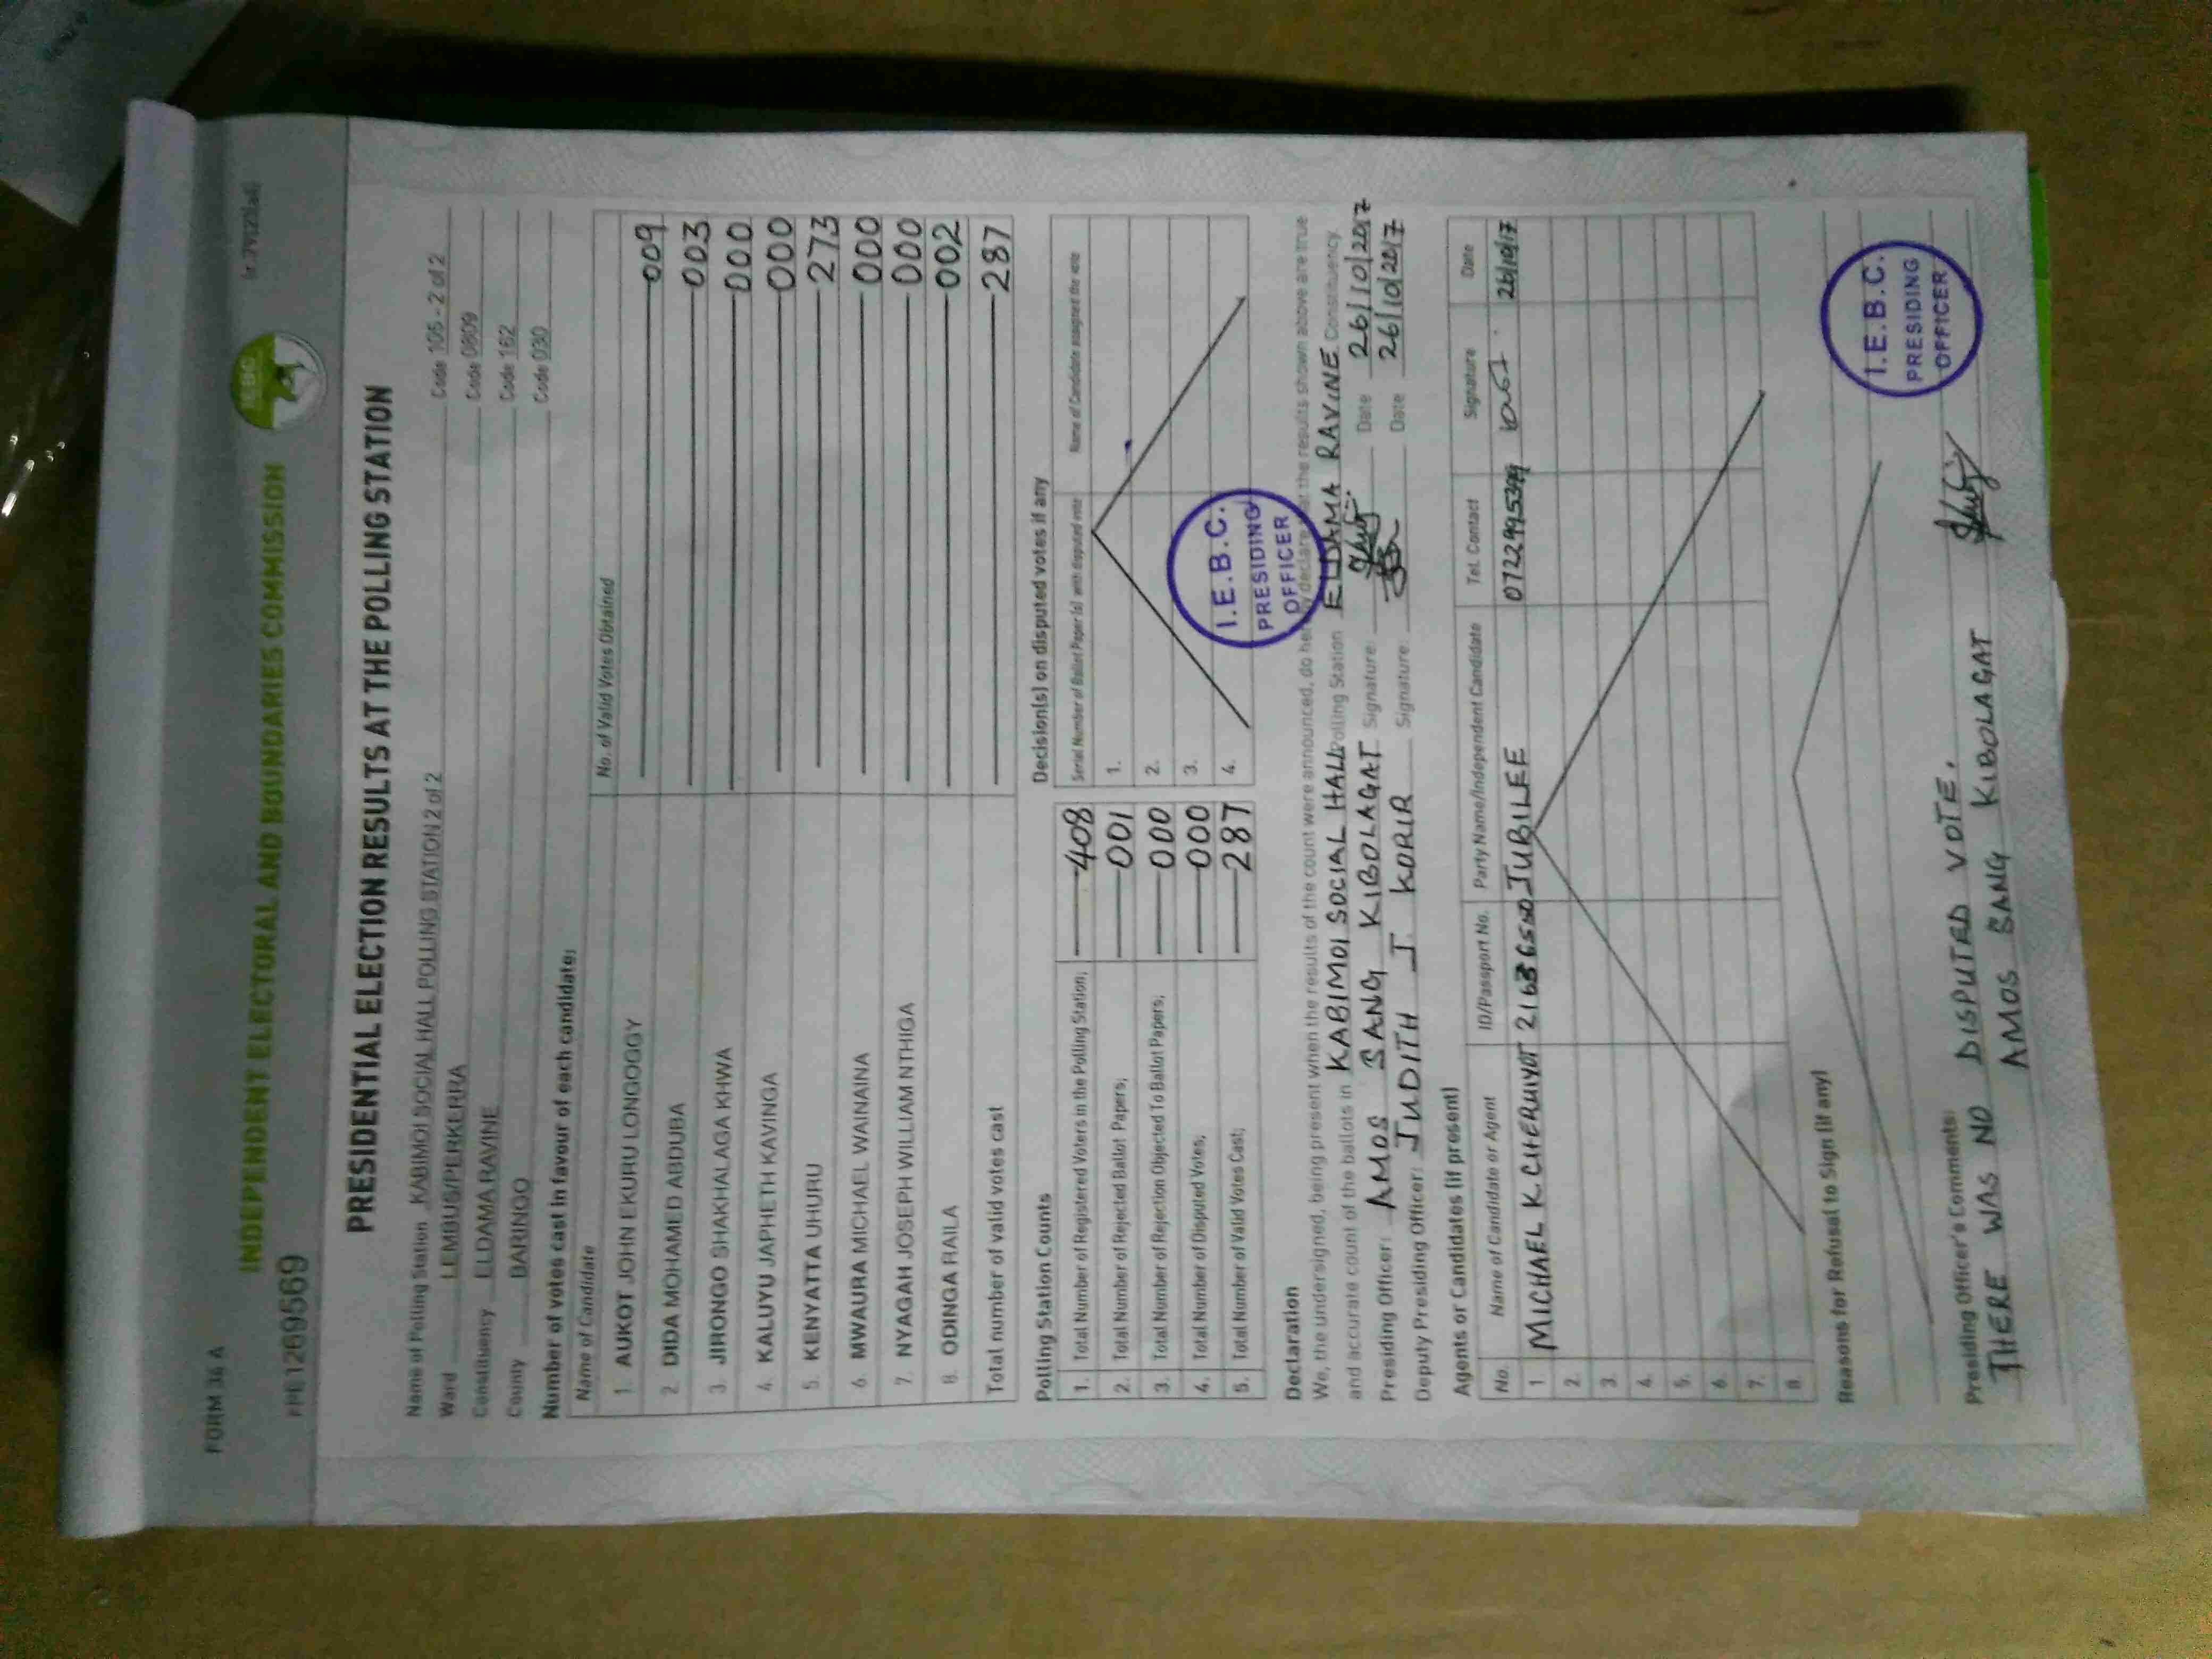 FORM 34 A
INDEPENDENT ELECTORAL AND BOUNDARIES COMMISSION
IEBC
PRE1269569
PRESIDENTIAL ELECTION RESULTS AT THE POLLING STATION
Name of Polling Station KABIMOI SOCIAL HALL POLLING STATION 2 of 2 Code 105 - 2 of 2
Ward LEMBUS/PERKERRA Code 0809
Constituency ELDAMA RAVINE Code 162
County BARINGO Code 030
Number of votes cast in favour of each candidate:
Name of Candidate No. of Valid Votes Obtained
1. AUKOT JOHN EKURU LONGOGGY 009
2. DIDA MOHAMED ABDUBA 003
3. JIRONGO SHAKHALAGA KHWA 000
4. KALUYU JAPHETH KAVINGA 000
5. KENYATTA UHURU 273
6. MWAURA MICHAEL WAINAINA 000
7. NYAGAH JOSEPH WILLIAM NTHIGA 000
8. ODINGA RAILA 002
Total number of valid votes cast 287
Polling Station Counts
1. Total Number of Registered Voters in the Polling Station; 408
2. Total Number of Rejected Ballot Papers; 001
3. Total Number of Rejection Objected To Ballot Papers; 000
4. Total Number of Disputed Votes; 000
5. Total Number of Valid Votes Cast; 287
Decision(s) on disputed votes if any
Serial Number of Ballot Paper (s) with disputed vote Name of Candidate assigned the vote
1.
2.
3.
4.
I.E.B.C.
PRESIDING
OFFICER
Declaration
We, the undersigned, being present when the results of the count were announced, do hereby declare that the results shown above are true
and accurate count of the ballots in KABIMOI SOCIAL HALL Polling Station ELDAMA RAVINE Constituency.
Presiding Officer: AMOS SANG KIBOLAGAT Signature: Date 26/10/2017
Deputy Presiding Officer: JUDITH J. KORIR Signature: Date 26/10/2017
Agents or Candidates (if present)
No. Name of Candidate or Agent ID/Passport No. Party Name/Independent Candidate Tel. Contact Signature Date
1 MICHAEL K CHERUIYOT JUBILEE 26/10/17
2.
3.
4.
5.
6.
7.
8.
Reasons for Refusal to Sign (if any)
Presiding Officer's Comments:
THERE WAS NO DISPUTED VOTE.
AMOS SANG KIBOLAGAT
I.E.B.C.
PRESIDING
OFFICER